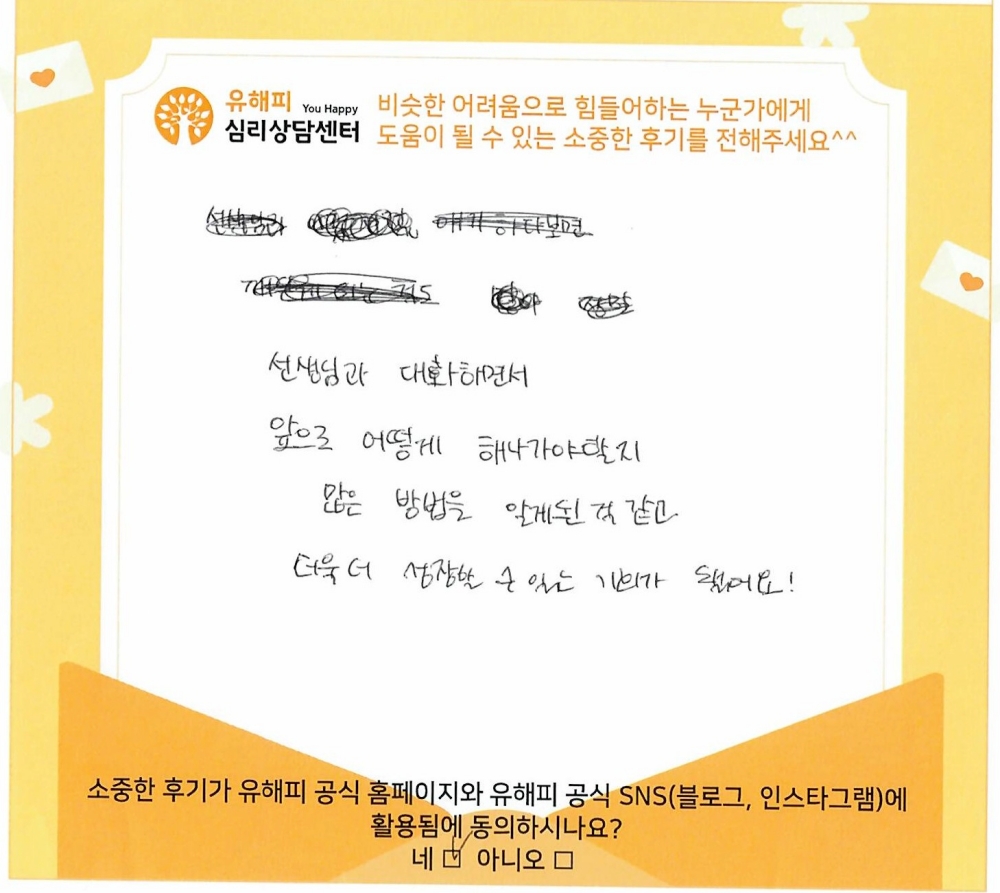 유해피 You Happy
심리상담센터
비슷한 어려움으로 힘들어하는 누군가에게
도움이 될 수 있는 소중한 후기를 전해주세요^^
얘기 하다보면
선생님과 대화하면서
앞으로 어떻게 해나가야할지
많은 방법을 알게된 것 같고
더욱 더 성장할 수 있는 기회가 됐어요!
소중한 후기가 유해피 공식 홈페이지와 유해피 공식 SNS(블로그, 인스타그램)에
활용됨에 동의하시나요?
네 ☑ 아니오 ☐